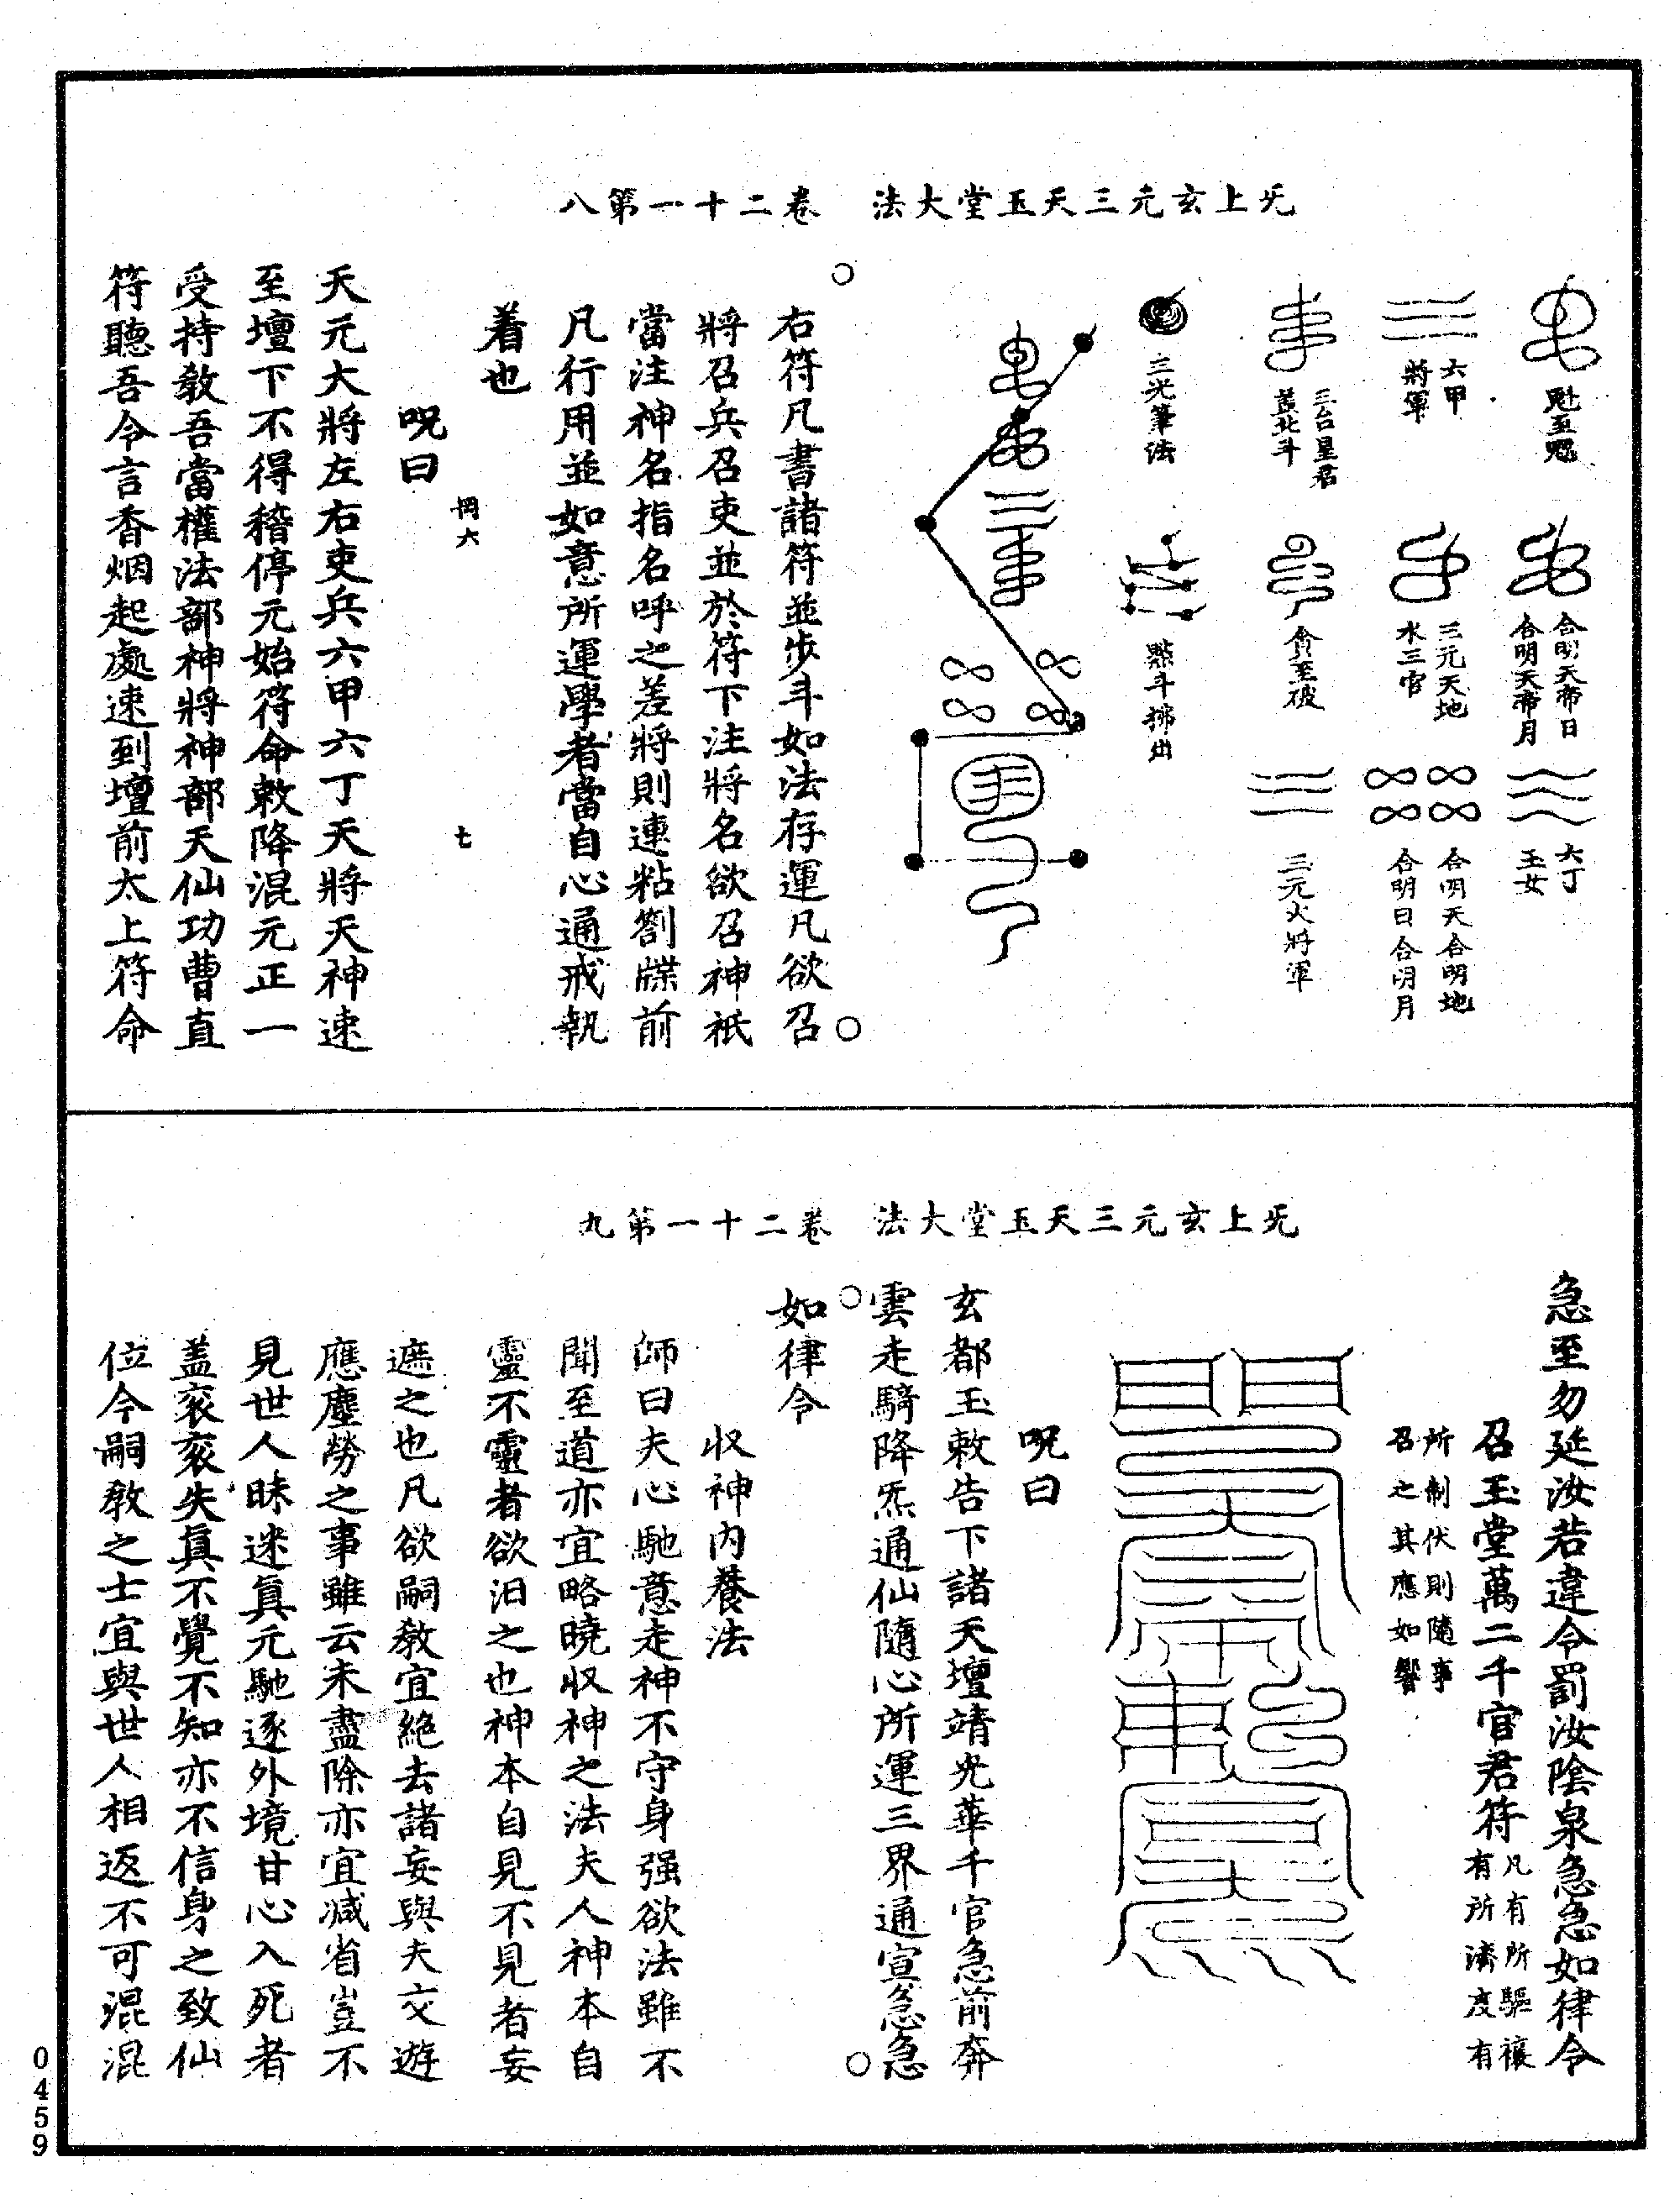 旡上玄元三天玉堂大法　卷二十一第八
魁至魒
合明天帝日
合明天帝月
六丁
玉女
六甲
將軍
三元天地
水三官
合明天合明地
合明日合明月
三台星君
蓋北斗
貪至破
三元火將軍
三光筆法
點斗掃出
右符凡書諸符並步斗如法存運凡欲召
將召兵召吏並於符下注將名欲召神祇
當注神名指名呼之差將則連粘劄牒前
凡行用並如意所運學者當自心通戒執
着也
罔六
七
呪曰
天元大將左右吏兵六甲六丁天將天神速
至壇下不得稽停元始符命敕降混元正一
受持教吾當權法部神將神部天仙功曹直
符聽吾令言香烟起處速到壇前太上符命
旡上玄元三天玉堂大法　卷二十一第九
急至勿延汝若違令罰汝陰泉急急如律令
召玉堂萬二千官君符凡有所驅禳
有所濟度有
所制伏則隨事
召之其應如響
呪曰
玄都玉敕告下諸天壇靖光華千官急前奔
雲走騎降炁通仙隨心所運三界通宣急急
如律令
収神內養法
師曰夫心馳意走神不守身强欲法雖不
聞至道亦宜略曉収神之法夫人神本自
靈不靈者欲汩之也神本自見不見者妄
遮之也凡欲嗣教宜絶去諸妄與夫交遊
應塵勞之事雖云未盡除亦宜減省豈不
見世人昧迷眞元馳逐外境甘心入死者
盖衮衮失眞不覺不知亦不信身之致仙
位今嗣教之士宜與世人相返不可混混
0459